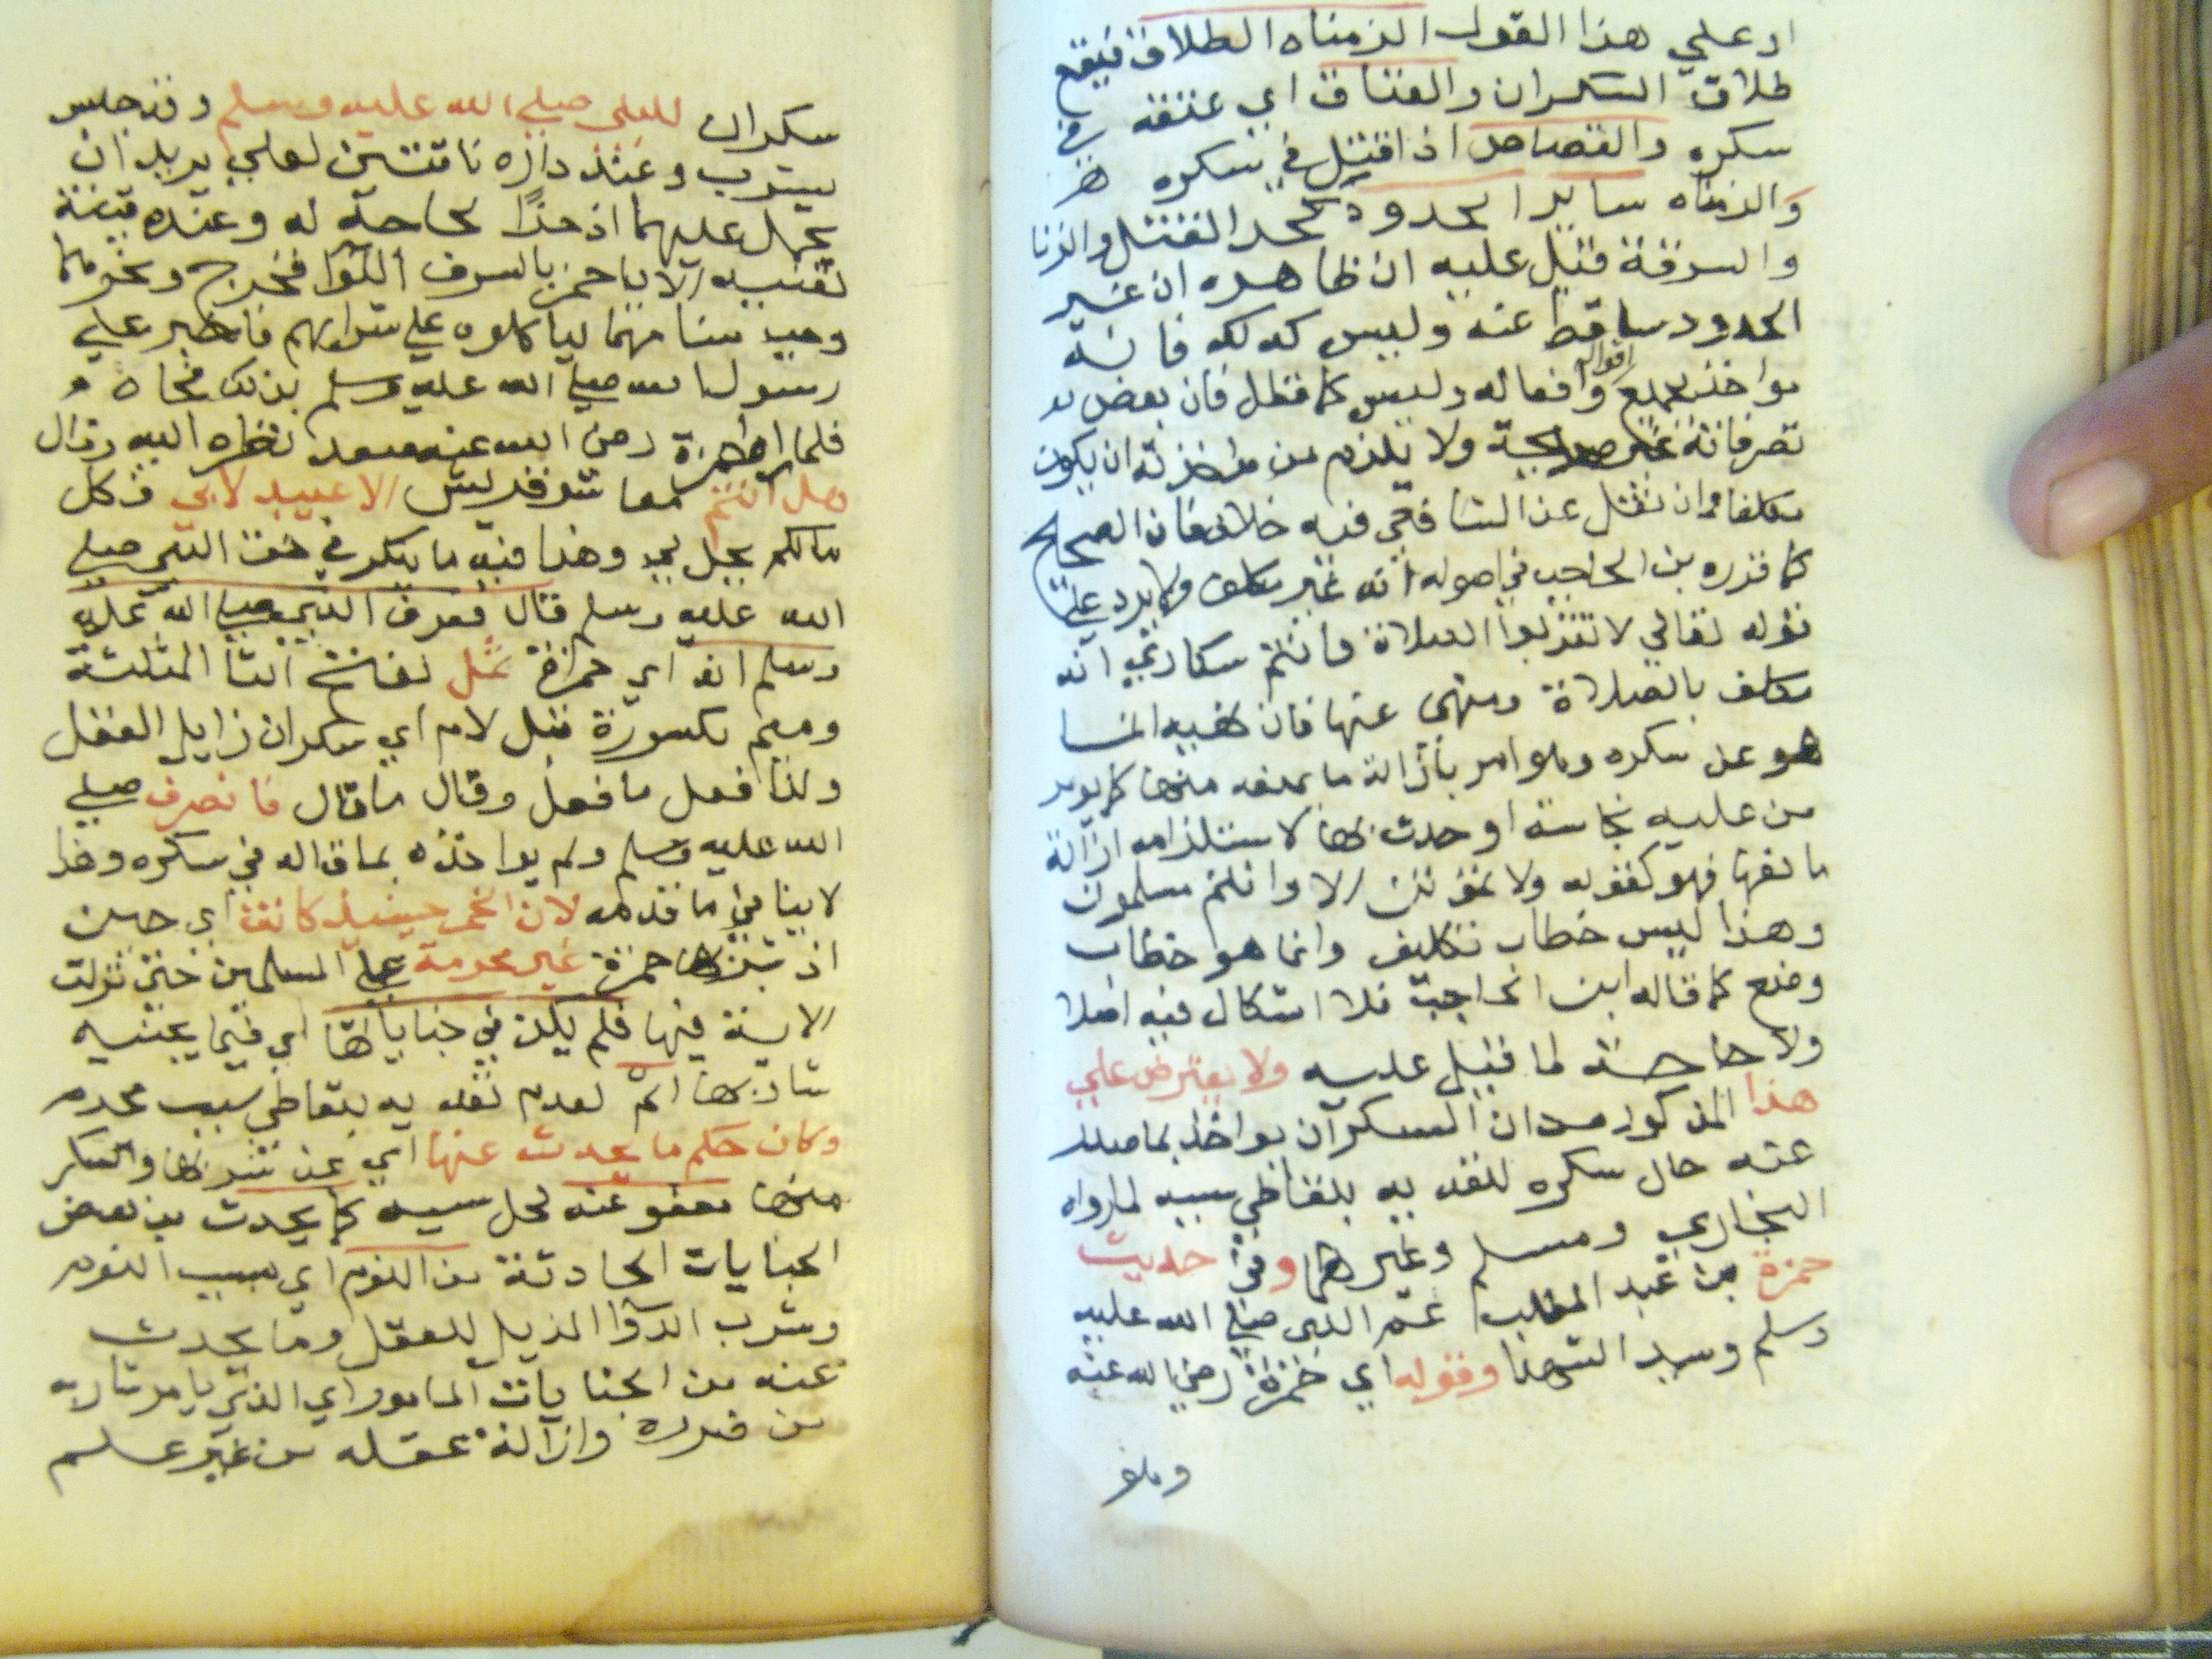 او علي هذا القول الزمناه الطلاق فيقع
طلاق السكران والعتاق اي عتقه في
سكره والقصاص اذا قتل في سكره
والزمناه ساير الحدود كحد القتل والزنا
والسرقة قيل عليه ان ظاهره ان غير
الحدود ساقط عنه وليس كذلك فانه
مواخذ بجميع اقواله وافعاله وليس كما قال فان بعض
تصرفاته غير صحيحة ولا يلزم من مواخذته ان يكون
مكلفا وان نقل عن الشافعي فيه خلاف فان الصحيح
كما قرره بن الحاجب في اصوله انه غير مكلف ولا يرد عليه
قوله تعالي لا تقربوا الصلاة وانتم سكاري انه
مكلف بالصلاة ومنهي عنها فان نهيه انما
هو عن سكره وهو امر بازالة ما يمنعه منها كما يومر
من عليه نجاسة او حدث بها لاستلزامه ازالة
مانعها فهو كقوله ولا تموتن الا وانتم مسلمون
وهذا ليس خطاب تكليف وانما هو خطاب
وضع كما قاله ابن الحاجب فلا اشكال فيه اصلا
ولا حاجة لما قيل عليه ولا يعترض علي
هذا المذكور من ان السكران يواخذ بما صدر
عنه حال سكره لتعديه بتعاطي سببه لما رواه
البخاري ومسلم وغيرهما وفي حديث
حمزة بن عبد المطلب عم النبي صلي الله عليه
وسلم وسيد الشهدا وقوله اي حمزة رضي الله عنه
وهو
سكران للنبي صلي الله عليه وسلم وقد جلس
يشرب وعند داره ناقتين لعلي يريد ان
يحمل عليهما اذخرا لحاجة له وعنده قينة
تغنيه الا يا حمز بالشرف النوا فخرج ونحرهما
وجب سنامهما لياكلوه علي شرابهم فاخبر علي
رسول الله صلي الله عليه وسلم بذلك فجاه
فلما راه حمزة رضي الله عنه صعد نظره اليه وقال
هل انتم معاشر قريش الا عبيد لابي وكل
مالكم بجل لي وهذا فيه ما ينكر في حق النبي صلي
الله عليه وسلم قال فعرف النبي صلي الله عليه
وسلم انه اي حمزة ثمل بفتح الثا المثلثة
وميم مكسورة قبل لام اي سكران زايل العقل
ولذا فعل ما فعل وقال ما قال فانصرف صلي
الله عليه وسلم ولم يواخذه بما قاله في سكره وهذا
لا ينافي ما قدمه لان الخمر حينيذ كانت اي حين
اذ شربها حمزة غير محرمة علي المسلمين حتي نزلت
الاية فيها فلم يكن في جناياتها اي فيما يجنيه
شاربها اثم لعدم تعديه بتعاطي سبب محرم
وكان حكم ما يحدث عنها اي عن شربها والسكر
منها معفو عنه لحل سببه كما يحدث من بعض
الجنايات الحادثة من النوم اي بسبب النوم
وشرب الدوا المزيل للعقل وما يحدث
عنه من الجنايات المامور اي الذي يامر شاربه
من ضرره وازالة عقله من غير علم